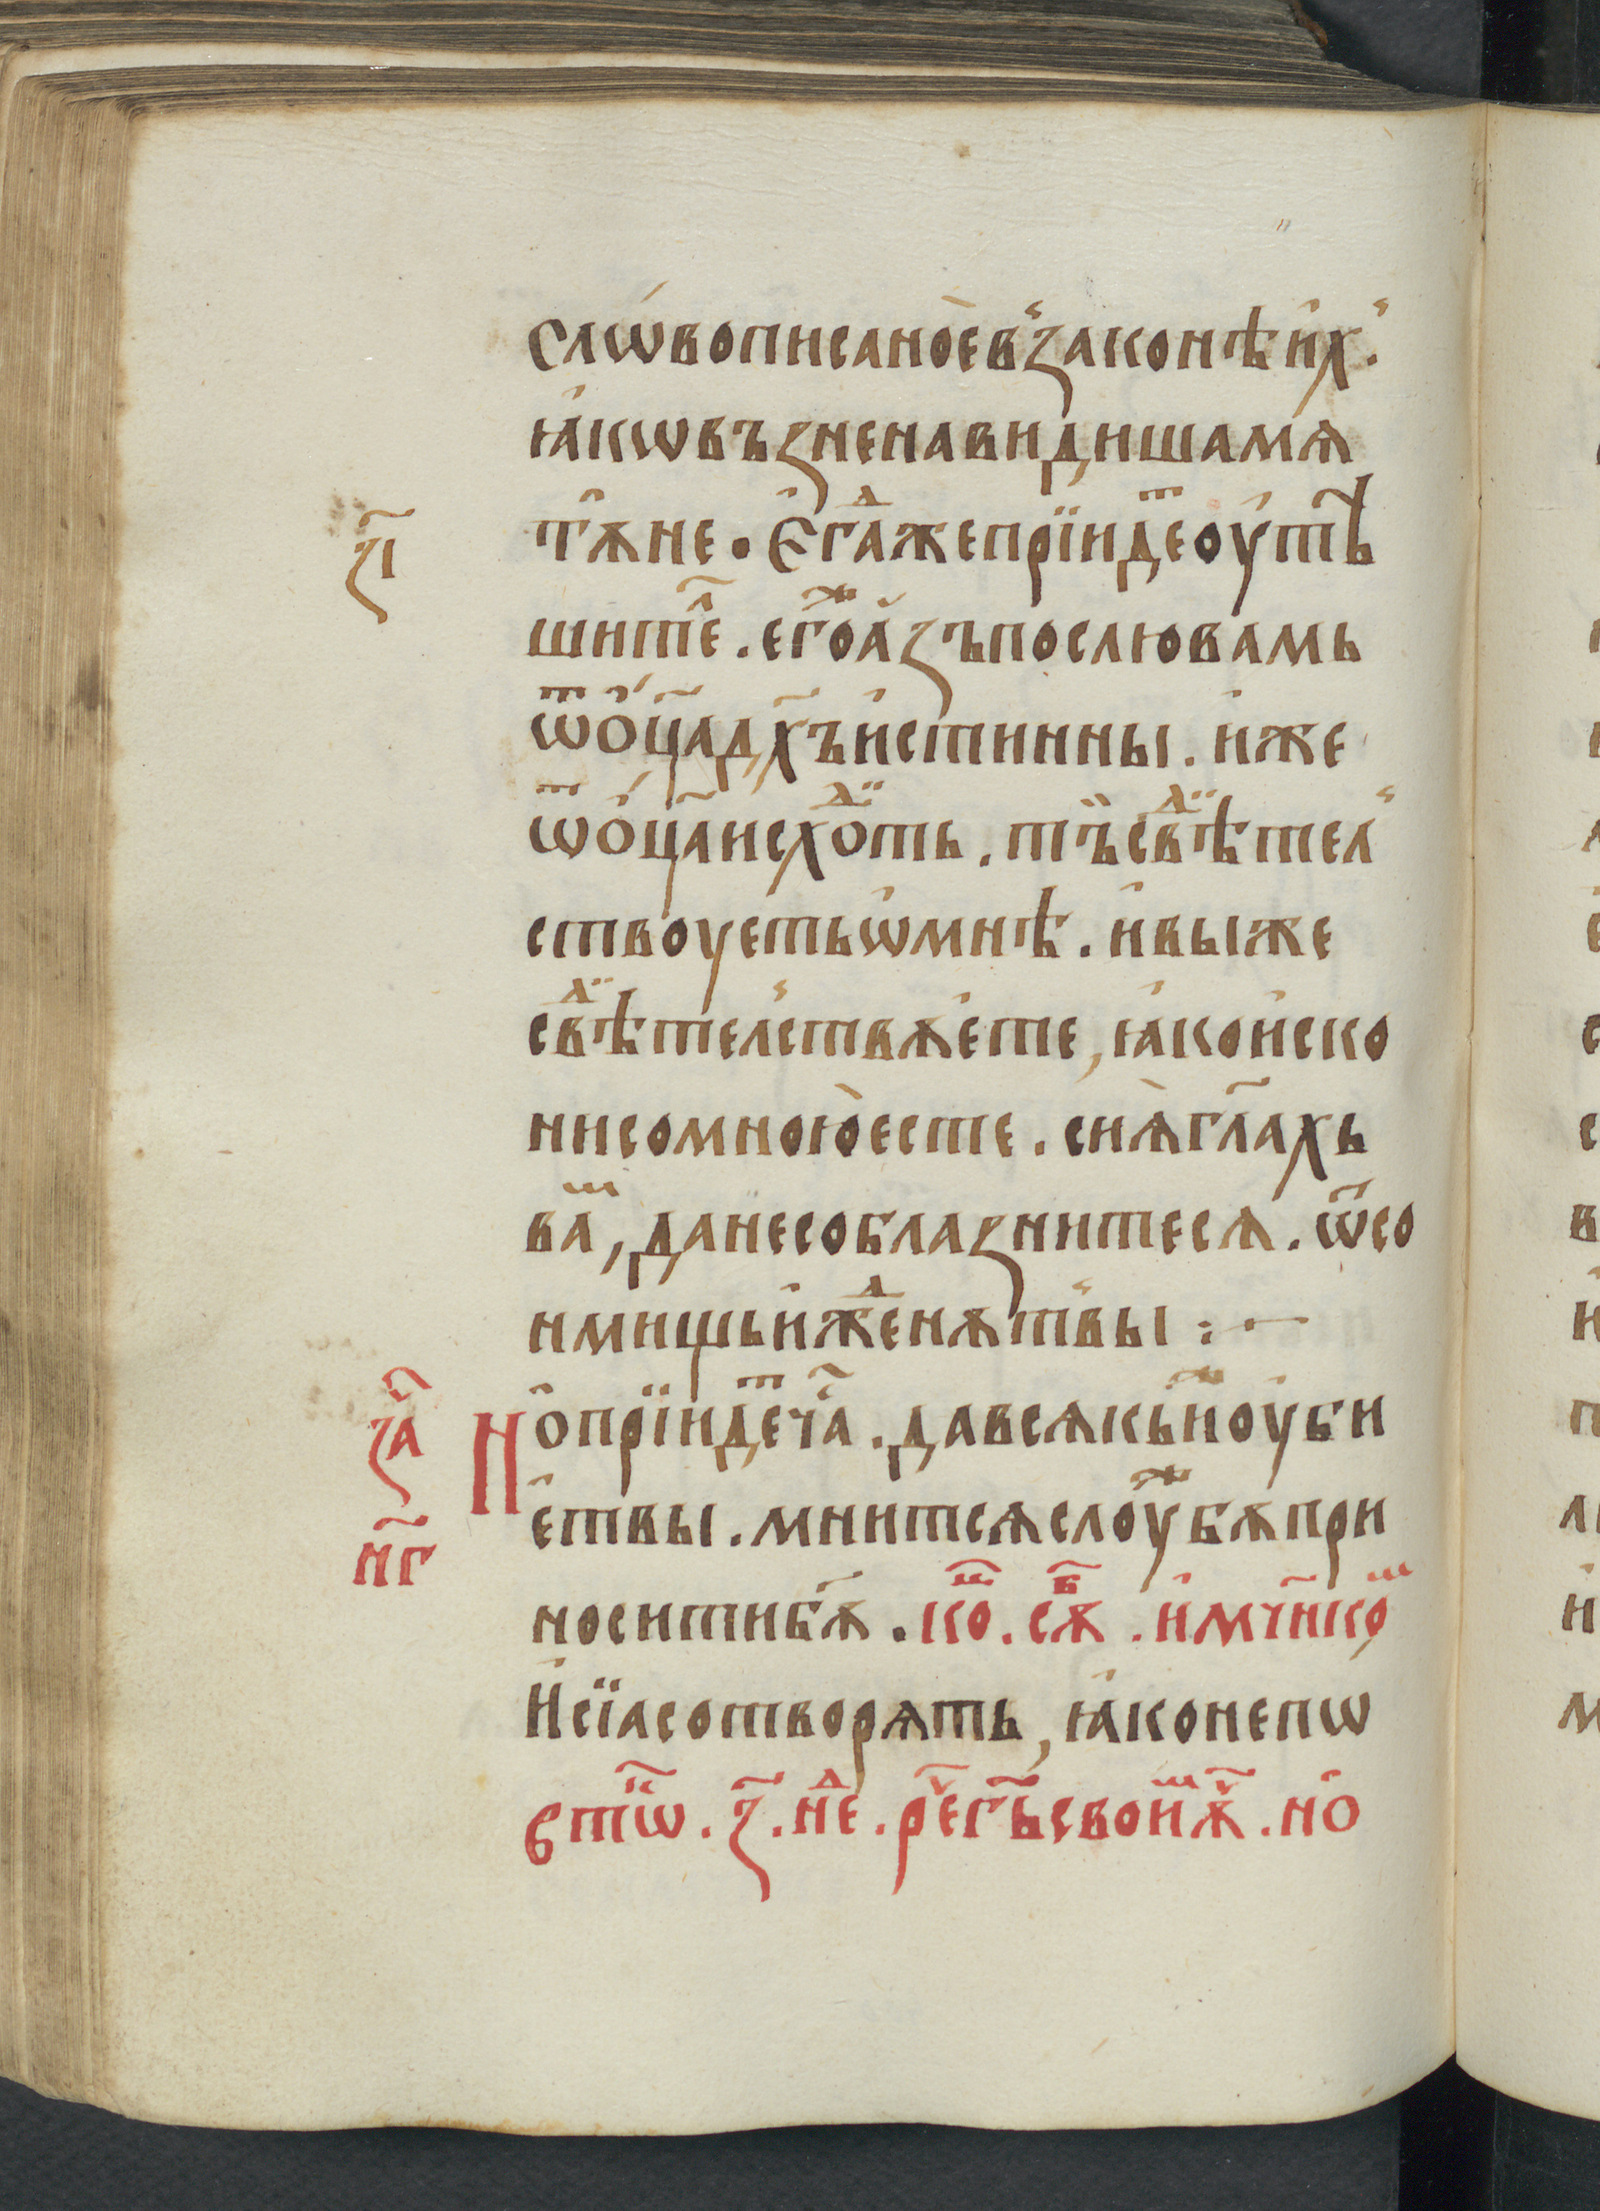 слѡ́вопⷭисанòев꙽законѣи҆х꙽.
ꙗ҆кѡвъзненавидишамѧ
з҃і
тꙋ҆не. Є҆гⷣажепрїидⷮеоу҆тѣ
шител҃е. егоⷤа҆зъпослювамь
ѿо҆ц҃адх҃ъи҆стинны. и҆же
ѿо҆ц҃аисхоⷣть. тъ̏свⷣѣтел꙽
ствоуетьѡ҆мнѣ. и҆выже
свⷣѣтел꙽ствѫе҆те, ꙗ҆кои҆ско
нисомноюⷪ҇есте. сиѧ̀гл҃ахь
ваⷨ, данесоблазнитесѧ. ѿсо
нмищьи҆жⷣенѫт꙽вы :·—
за҃
Но҆прїидⷮеч҃а. давсѧкьⷤи҆оу҆би
е҆твы. мнитсѧслоуⷤбѫпри
нг҃
носитиб҃ꙋ. коⷩ҇. сѫⷠ. и҆мч҃нкоⷨ
И҆сїасотворѧть, ꙗ҆конепѡ
втѡⷬ҇. з҃. нⷣе. рⷱ҇егь҃своиⷨѫⷱ҇. но҆